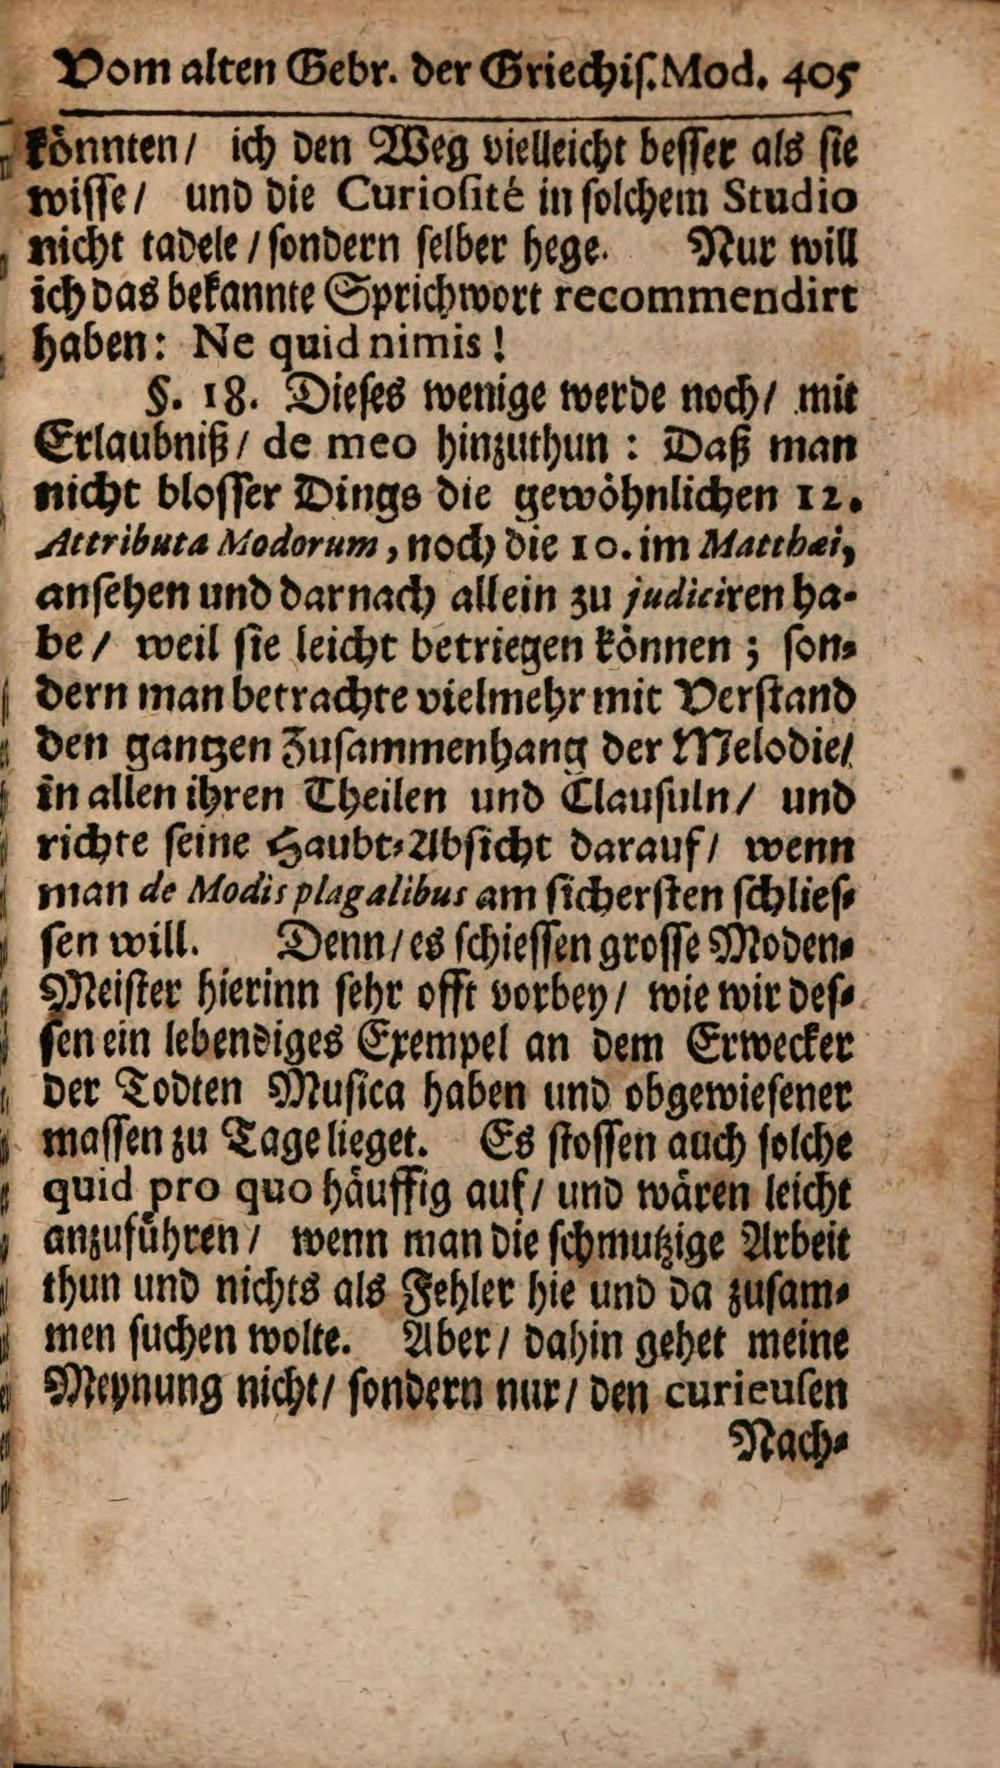 Vom alten Gebr. der Griechis. Mod. 405
könnten/ ich den Weg vielleicht besser als sie
wisse/ und die Curiosité in solchem Studio
nicht tadele/ sondern selber hege. Nur will
ich das bekannte Sprichwort recommendirt
haben: Ne quid nimis!
§. 18. Dieses wenige werde noch/ mit
Erlaubniß/ de meo hinzuthun: Daß man
nicht blosser Dings die gewöhnlichen 12.
Attributa Modorum, noch die 10. im Matthæi,
ansehen und darnach allein zu judiciren ha-
be/ weil sie leicht betriegen können; son-
dern man betrachte vielmehr mit Verstand
den gantzen Zusammenhang der Melodie/
in allen ihren Theilen und Clausuln/ und
richte seine Haubt-Absicht darauf/ wenn
man de Modis plagalibus am sichersten schlies-
sen will. Denn/ es schiessen grosse Moden-
Meister hierinn sehr offt vorbey/ wie wir des-
sen ein lebendiges Exempel an dem Erwecker
der Todten Musica haben und obgewiesener
massen zu Tage lieget. Es stossen auch solche
quid pro quo häuffig auf/ und wären leicht
anzuführen/ wenn man die schmutzige Arbeit
thun und nichts als Fehler hie und da zusam-
men suchen wolte. Aber/ dahin gehet meine
Meynung nicht/ sondern nur/ den curieusen
Nach-